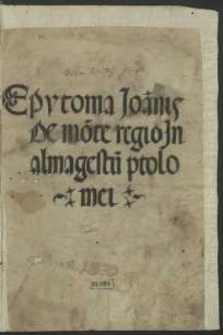 Epytoma Joānis
de mōte regio In
almagestū ptolo
mei